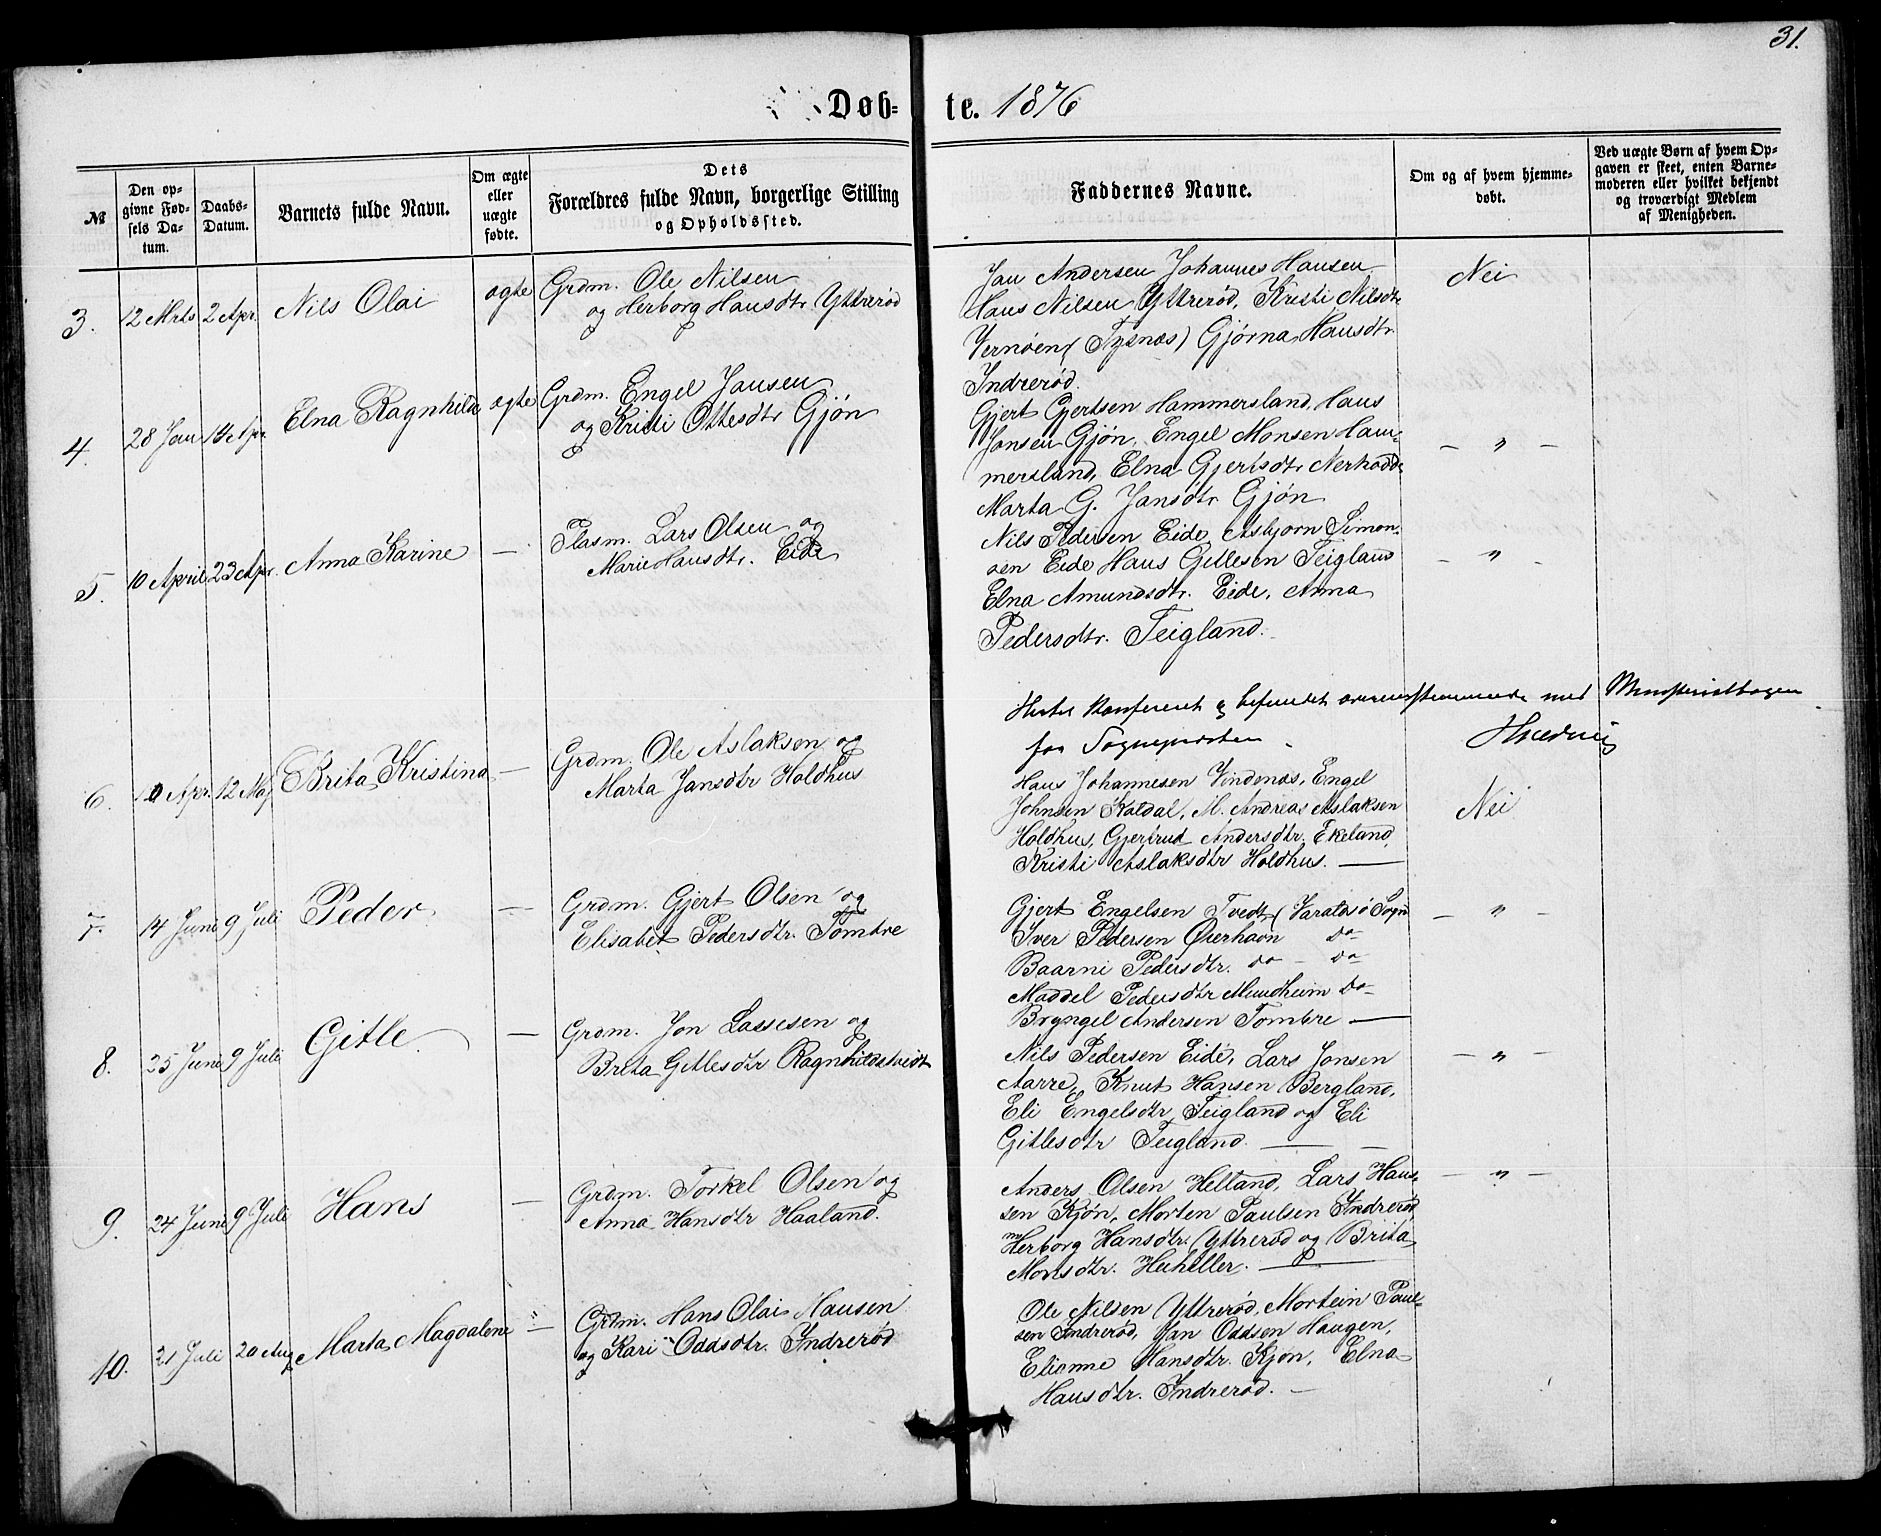 31.
Døb- te. 1876
№
Den op-
givne Fød-
sels Da-
tum.
Daabs-
Datum.
Barnets fulde Navn.
Om ægte
eller
uægte
fødte.
Dets
Forældres fulde Navn, borgerlige Stilling
og Opholdssted.
Faddernes Navne.
Om og af hvem hjemme-
døbt.
Ved uægte Børn af hvem Op-
gaven er skeet, enten Barne-
moderen eller hvilket bekjendt
og troværdigt Medlem
af Menigheden.
3. 12 Mrts 2 Apr. Nils Olai ægte Grdm. Ole Nilsen
og Herborg Hansdtr Yttrerød
Jan Andersen Johannes Hansen Nei
Hans Nilsen Yttrerød, Kristi Nilsdtr
Vernøen (Tysnæs) Gjørna Hansdtr
Indrerød.
4. 28 Jan Apr. Elna Ragnhild ægte Grdm. Engel Jansen
og Kristi Ottesdtr Gjøn
Gjert Gjertsen Hammersland, Hans
Jansen Gjøn, Engel Monsen Ham-
mersland, Elna Gjertsdtr — " —
Marta G. Jansdtr Gjøn
5. 10 April 23 Apr. Anna Karine — Plasm. Lars Olsen og
Marie Hansdtr. Eide
Nils Pedersen Eide, Asbjørn Simon-
sen Eide Hans Gitlesen Teigland — " —
Elna Amundsdtr. Eide, Anna
Pedersdtr. Teigland.
Konfereret og befundet overensstemmende med Ministerialbogen
for Sognepresten
6. 10 Apr. 12 Maj Brita Kristina — Grdm. Ole Aslaksen og
Marta Jansdtr Holdhus
Hans Johannesen Vindenæs, Engel
Johnsen Kaldal, M. Andreas Aslaksen Nei
Holdhus, Gjertrud Andersdtr. Ekeland,
Kristi Aslaksdtr Holdhus. —
7. 14 Juni 9 Juli Peder — Grdm. Gjert Olsen og
Elisabet Pedersdtr. Tombre
Gjert Engelsen Tvedt (Varaldsø Sogn — " —
Iver Pedersen Østerhavn do
Baarni Pedersdtr. do — do
Maddel Pedersdtr Mundheim do
Bryngel Andersen Tombre —
8. 25 Juni 9 Juli Gitle — Grdm. Jon Lassesen og
Brita Gitlesdtr Ragnhildstveidt
Nils Pedersen Eide, Lars Jonsen — " —
Aarre, Knut Hansen Bergland,
Eli Engelsdtr Teigland og Eli
Gitlesdtr Teigland. —
9. 24 Juni 9 Juli Hans — Grdm. Torkel Olsen og
Anna Hansdtr Haaland.
Anders Olsen Helland, Lars Han- — " —
sen Kjøn, Morten Paulsen Indrerød
Herborg Hansdtr. Yttrerød og Brita
Monsdtr. Helheller. —
10. 21 Juli 20 Aug Marta Magdalene — Grdm. Hans Olai Hansen
og Kari Oddsdtr. Indrerød
Ole Nilsen Yttrerød, Mortein Paul-
sen Indrerød, Jan Oddsen Haugen,
Elianne Hansdtr. Kjøn, Elna
Hansdtr. Indrerød. —